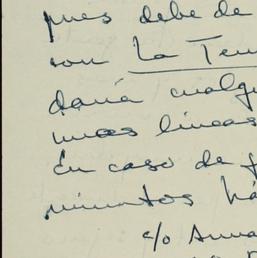 pues debe de
son La Tem
daría cualqu
unas líneas
En caso de
minutos há
c/o Anna